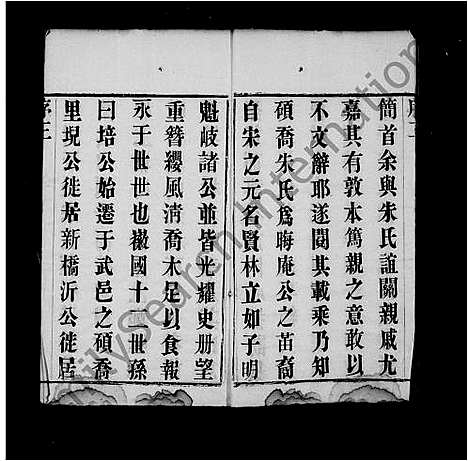 簡首余與朱氏誼關親戚尤
嘉其有敦本篤親之意敢以
不文辭耶遂閱其載乘乃知
碩喬朱氏爲晦庵公之苗裔
自宋之元名賢林立如子明
魁岐諸公並皆光耀史册望
重簪纓風清喬木足以食報
永于世世也徽國十二世孫
曰培公始遷于武邑之碩喬
里堄公徙居新橋沂公徙居